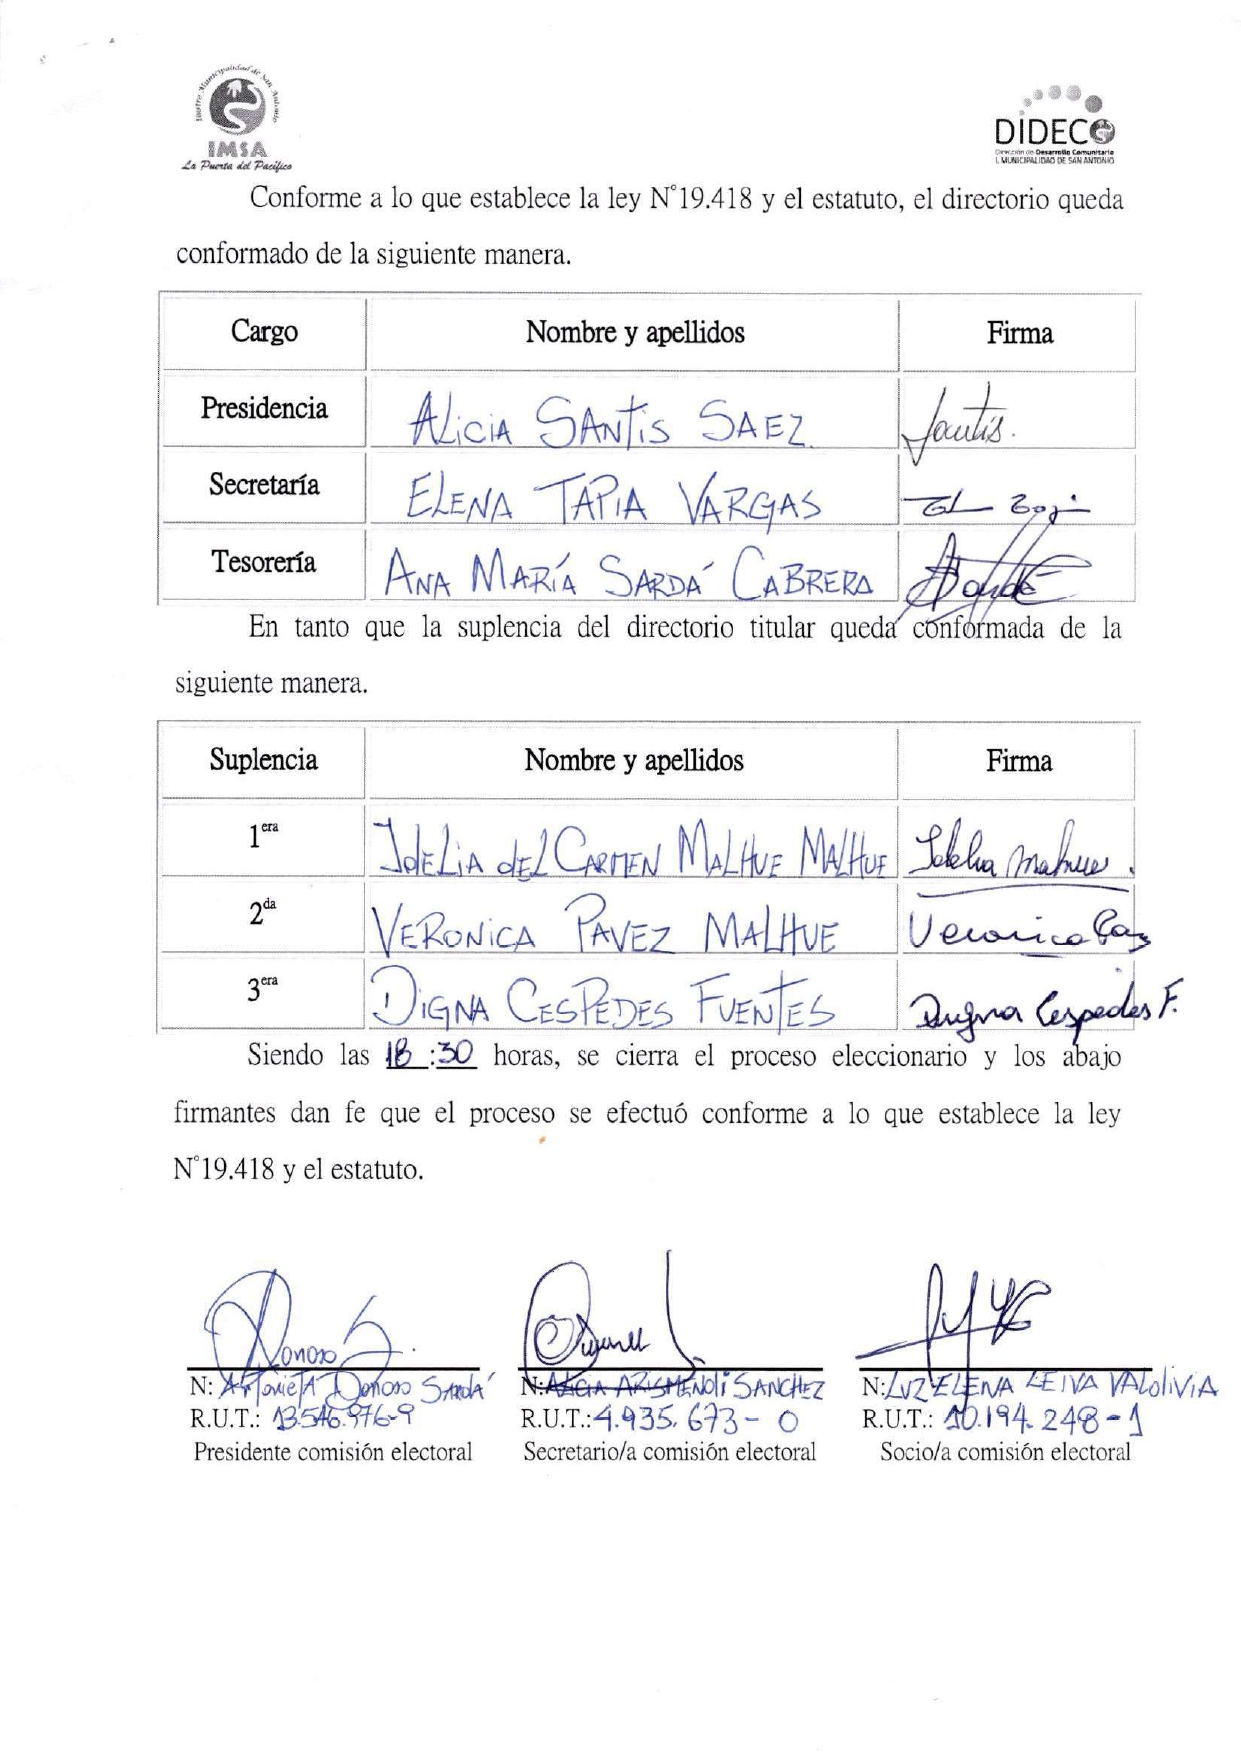 Ilustre Municipalidad de San Antonio
IMSA
La Puerta del Pacífico
DIDECO
Dirección de Desarrollo Comunitario
I. MUNICIPALIDAD DE SAN ANTONIO
Conforme a lo que establece la ley N°19.418 y el estatuto, el directorio queda
conformado de la siguiente manera.
Cargo Nombre y apellidos Firma
Presidencia ALiciA SANtis SAEZ Santis.
Secretaría ELENA TAPIA VARGAS
Tesorería ANA MARÍA SARDÁ CABRERA
En tanto que la suplencia del directorio titular queda conformada de la
siguiente manera.
Suplencia Nombre y apellidos Firma
1era IdELiA dEL CARMEN MALHUE MALHUE
2da VERONiCA PAVEZ MALHUE Veronica Pav
3era DIGNA CESPEDES FUENTES Digna Cespedes F.
Siendo las 18:30 horas, se cierra el proceso eleccionario y los abajo
firmantes dan fe que el proceso se efectuó conforme a lo que establece la ley
N°19.418 y el estatuto.
Donoso S.
N: Antonieta Donoso Sardá N: ALiCiA ARISMENdi SANCHEZ N: LUZ ELENA LEIVA VALdiViA
R.U.T.: 13.546.976-9 R.U.T.: 4.935.673-0 R.U.T.: 10.194.248-1
Presidente comisión electoral Secretario/a comisión electoral Socio/a comisión electoral